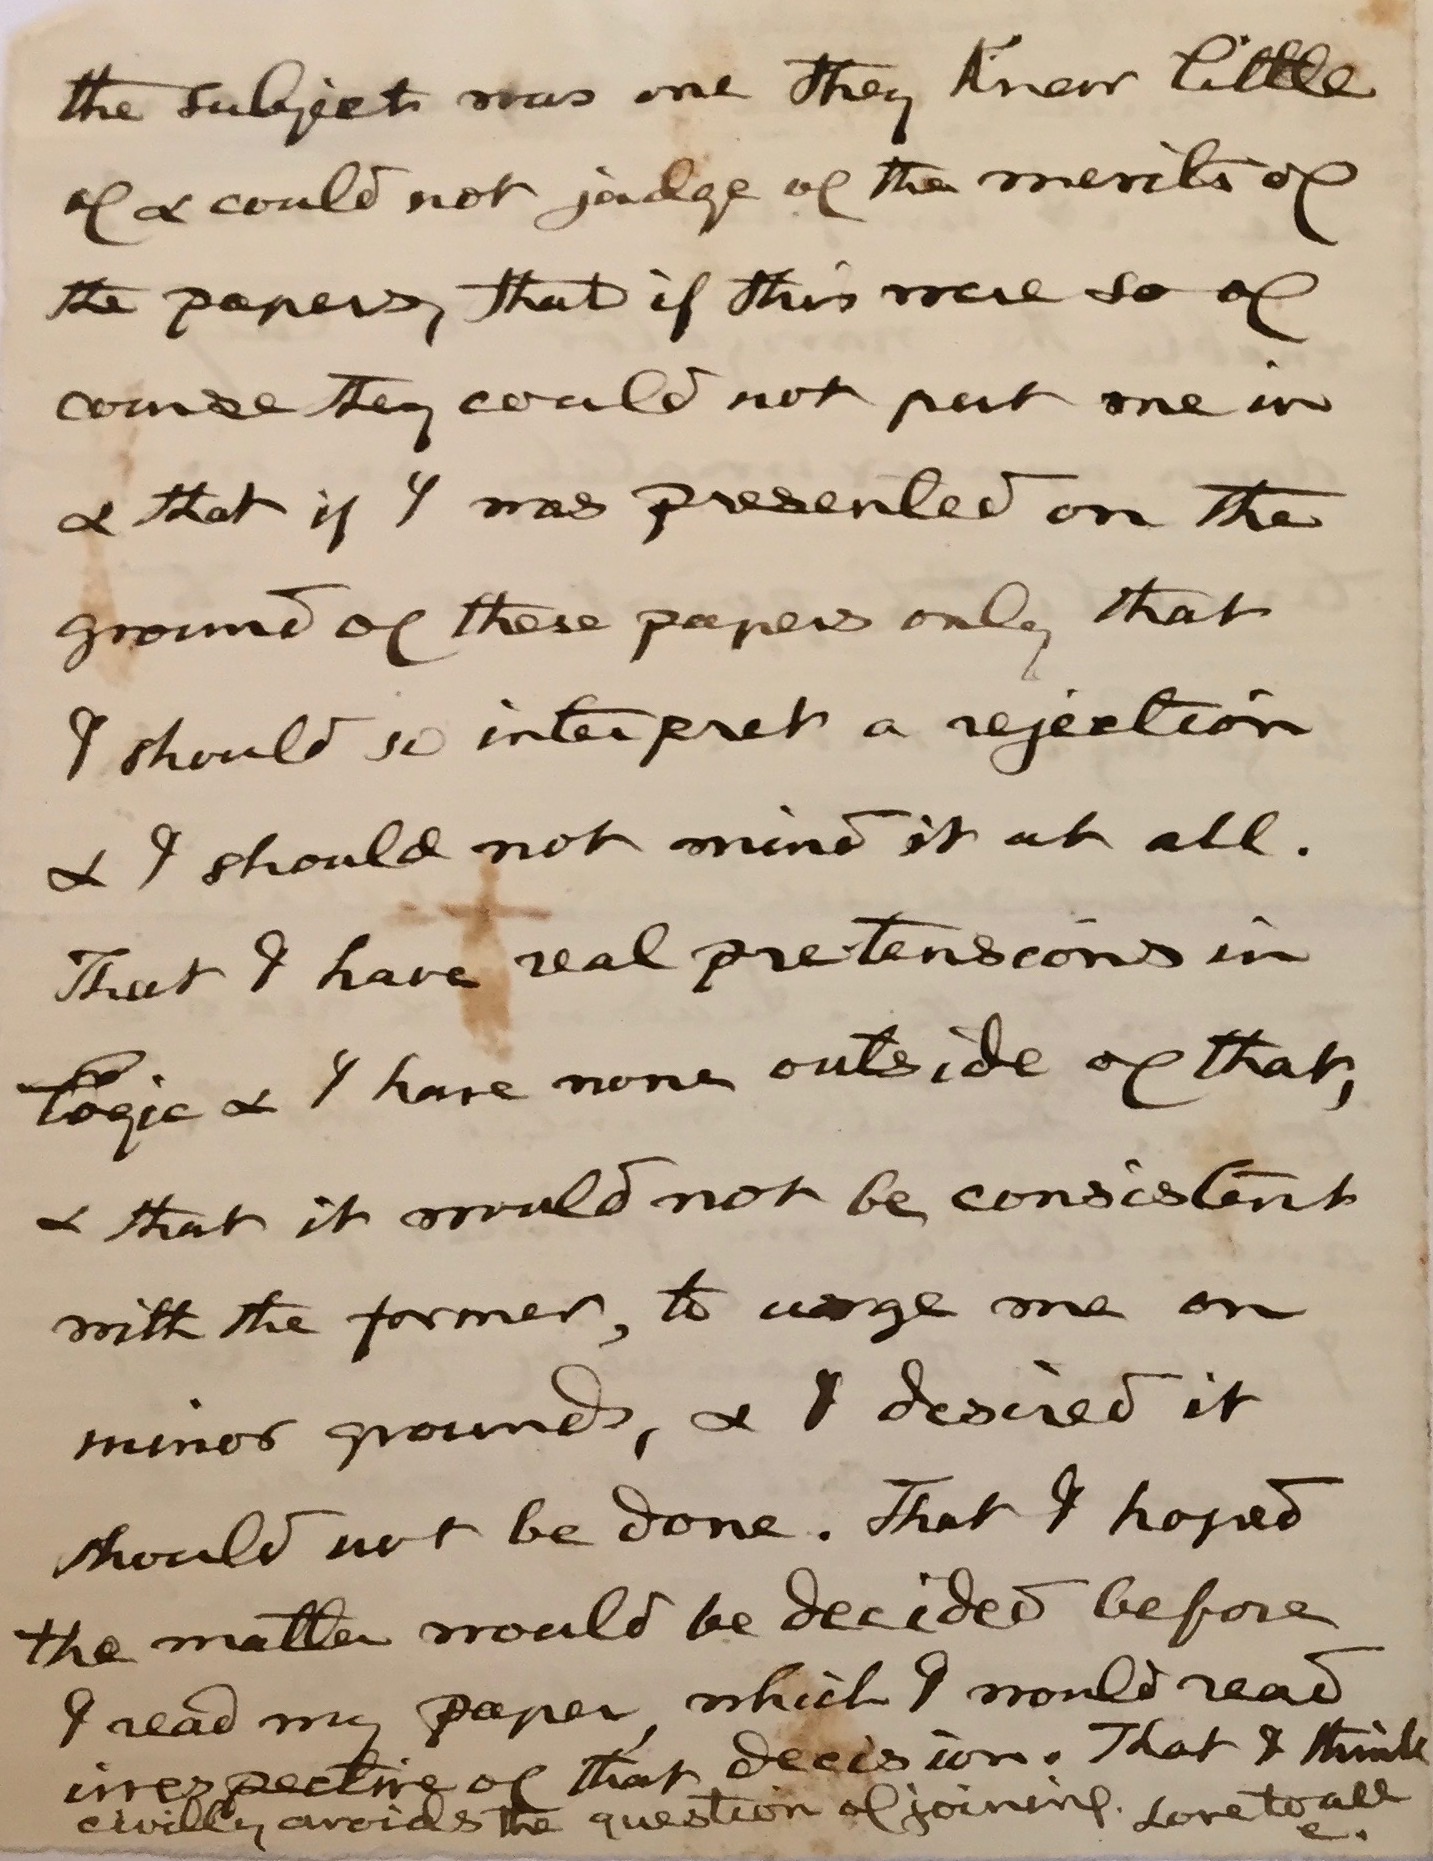 the subject was one they knew little
of & could not judge of the merits of
the papers, that if this were so of
course they could not put me in
& that if I was presented on the
ground of these papers only that
I should so interpret a rejection
& I should not mind it at all.
That I have real pretensions in
Logic & I have none outside of that,
& that it would not be consistent
with the former, to urge me on
minor grounds, & I desired it
should not be done. That I hoped
the matter would be decided before
I read my paper, which I would read
irrespective of that decision. That I think
civilly avoids the question of joining. Love to all